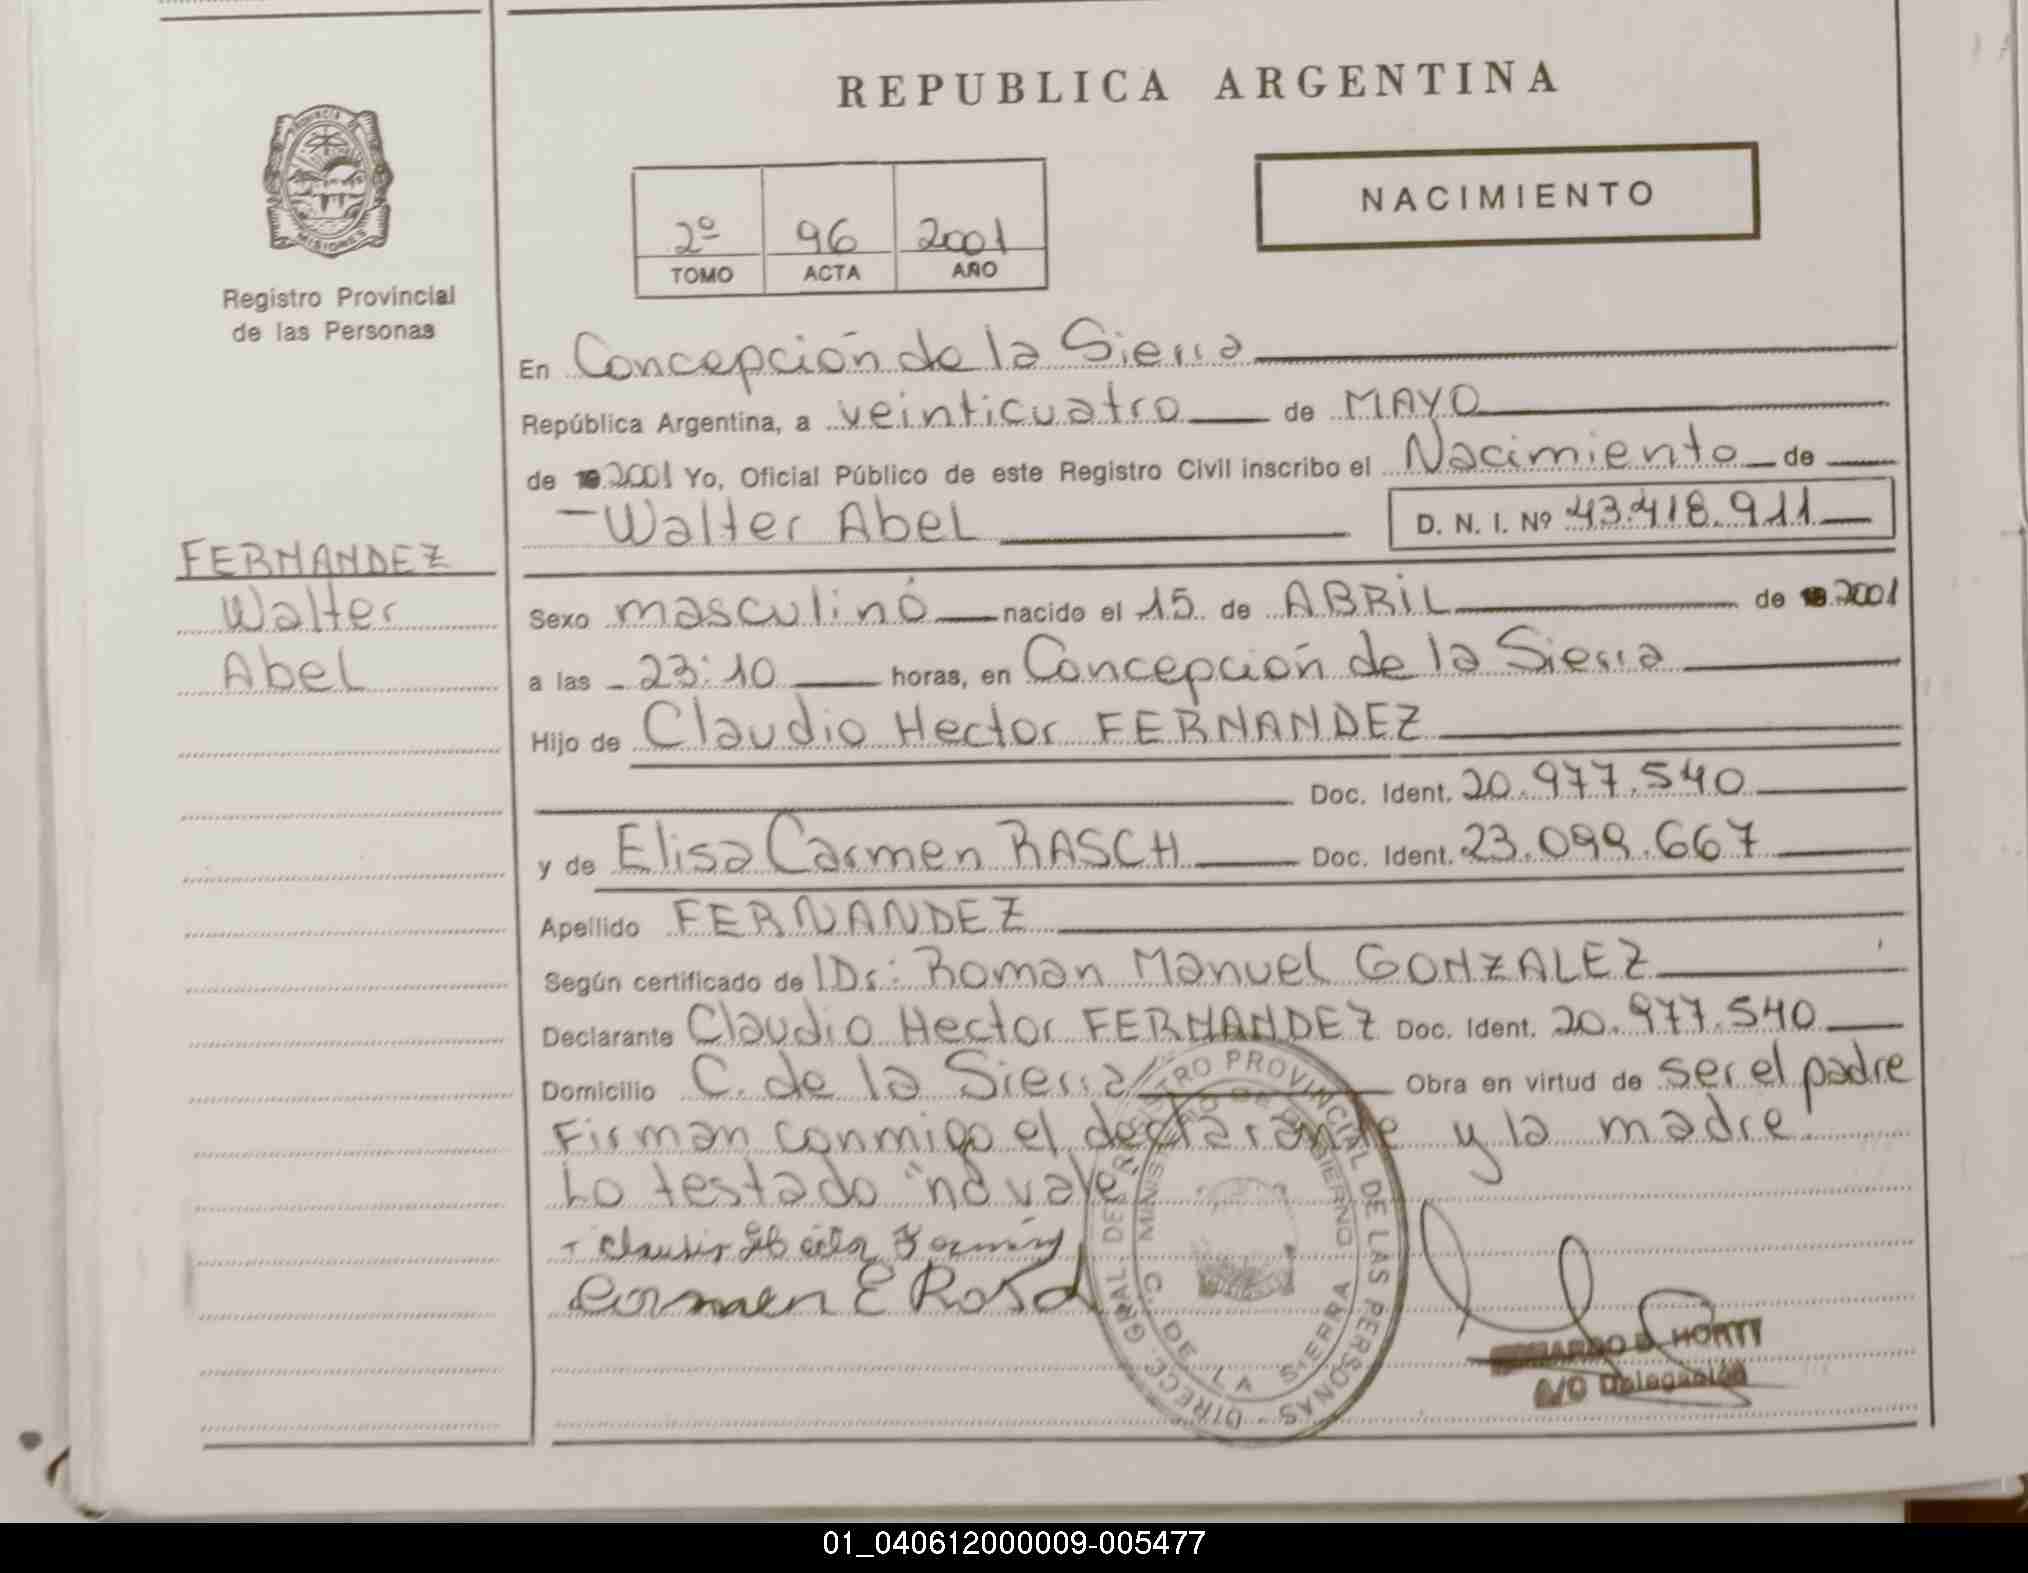 REPUBLICA ARGENTINA
NACIMIENTO
PROVINCIA DE MISIONES
Registro Provincial
de las Personas
2º 96 2001
TOMO ACTA AÑO
En Concepción de la Sierra
República Argentina, a veinticuatro de MAYO
de 19 2001 Yo, Oficial Público de este Registro Civil inscribo el Nacimiento de
Walter Abel D. N. I. Nº 43.418.911
FERNANDEZ
Walter
Abel
Sexo masculino nacido el 15 de ABRIL de 19 2001
a las 23:10 horas, en Concepción de la Sierra
Hijo de Claudio Hector FERNANDEZ
Doc. Ident. 20.977.540
y de Elisa Carmen RASCH Doc. Ident. 23.099.667
Apellido FERNANDEZ
Según certificado de Dr: Roman Manuel GONZALEZ
Declarante Claudio Hector FERNANDEZ Doc. Ident. 20.977.540
Domicilio C. de la Sierra Obra en virtud de ser el padre
Firman conmigo el declarante y la madre.
Lo testado "no vale"
Carmen E
DIRECC. GRAL. DEL REGISTRO PROVINCIAL DE LAS PERSONAS
MINISTERIO DE GOBIERNO
C. DE LA SIERRA
HORTT
A/C Delegación
01_040612000009-005477